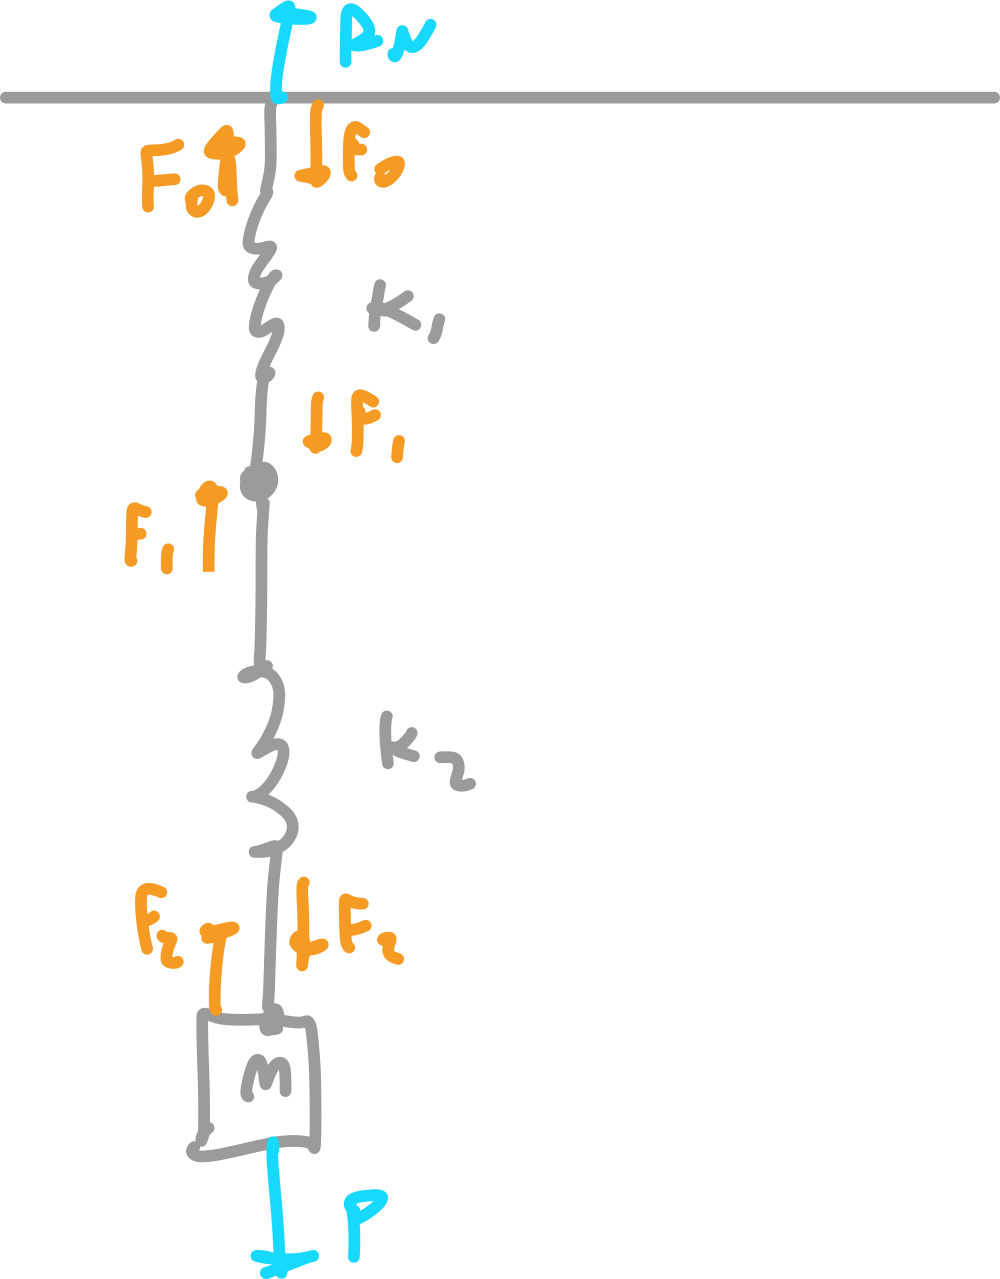 RN
F0
F0
K1
F1
F1
K2
F2
F2
M
P